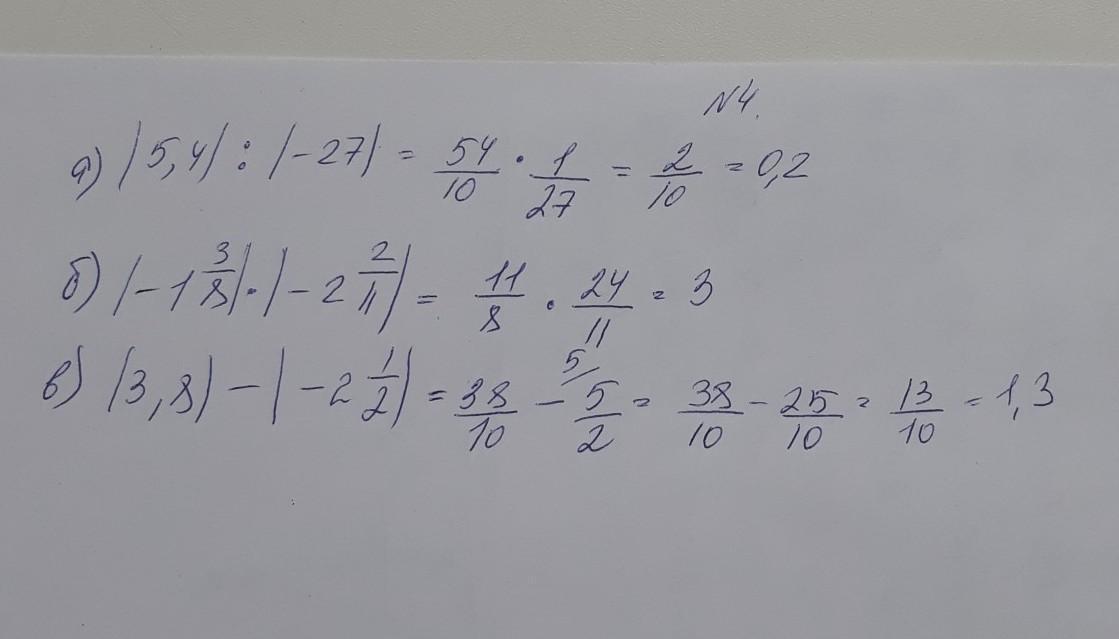 N4.
а) |5,4| : |-27| = 54/10 · 1/27 = 2/10 = 0,2
б) |-1 3/8| · |-2 2/11| = 11/8 · 24/11 = 3
в) |3,8| - |-2 1/2| = 38/10 - 5/2 5/ = 38/10 - 25/10 = 13/10 = 1,3